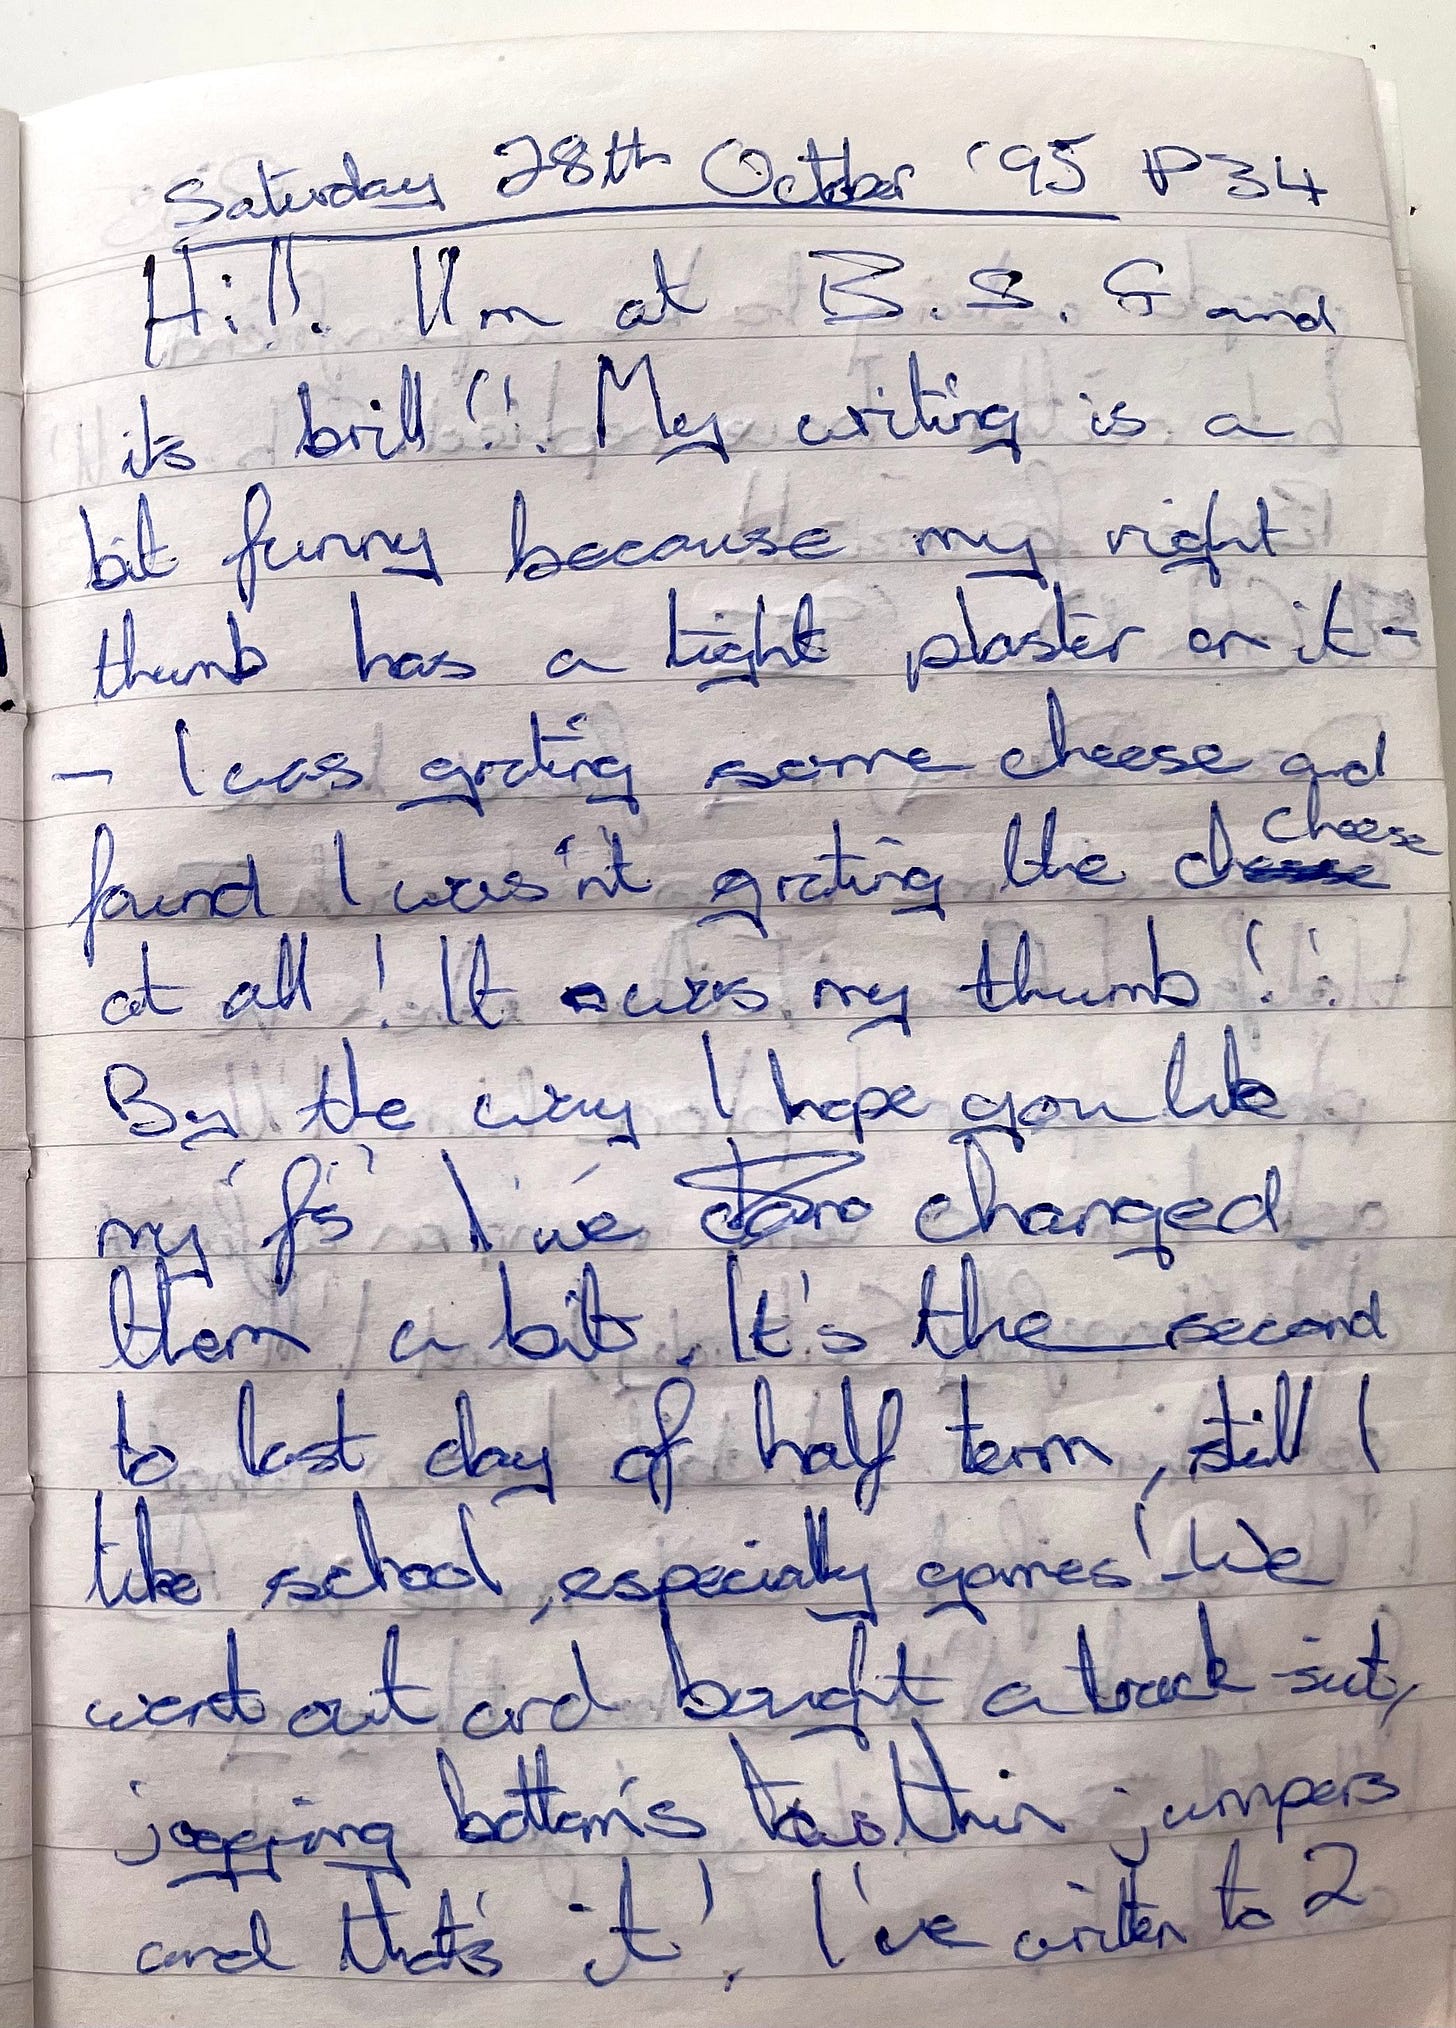 Saturday 28th October '95 P34
Hi!! I'm at B.S.G and
its brill!! My writing is a
bit funny because my right
thumb has a tight plaster on it -
- I was grating some cheese and
found I was'nt grating the cheese
at all! It was my thumb!!
By the way I hope you like
my 'f's' I've changed
them a bit. It's the second
to last day of half term, still I
like school, especially games! We
went out and bought a track-suit,
jogging bottom's two thin jumpers
and that's it! I've writen to 2